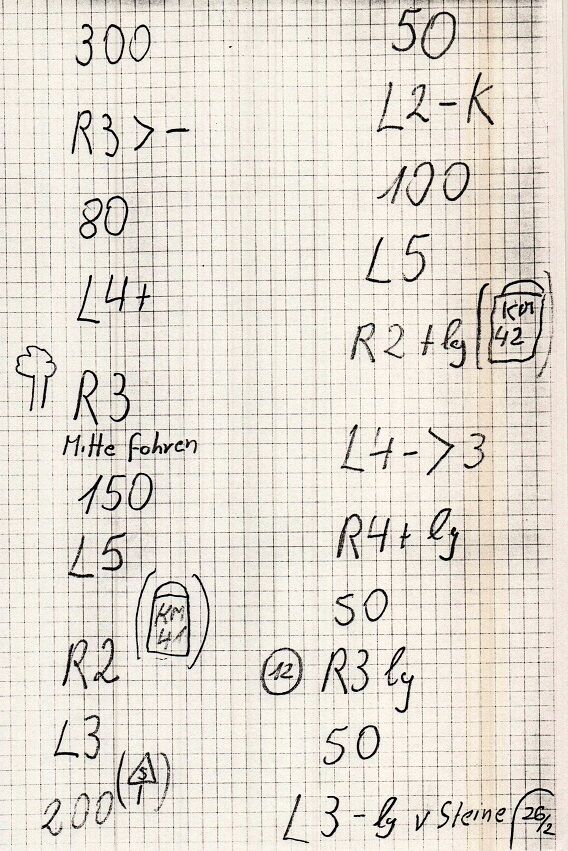 300
R3 > -
80
L4+
R3
Mitte fahren
150
L5
KM
41
R2
L3
200
S
50
L2-K
100
L5
R2+lg
KM
42
L4->3
R4+ lg
50
12 R3 lg
50
L3-lg v Steine 26/2